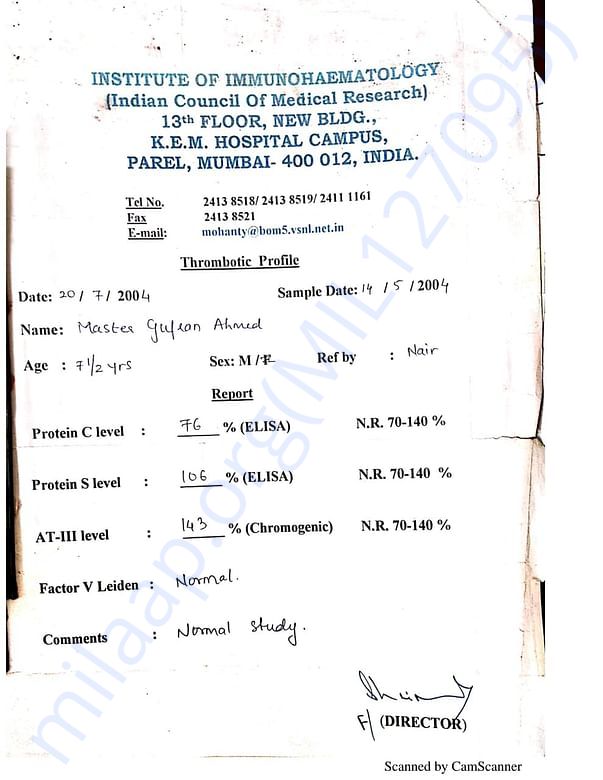 INSTITUTE OF IMMUNOHAEMATOLOGY
(Indian Council Of Medical Research)
13th FLOOR, NEW BLDG.,
K.E.M. HOSPITAL CAMPUS,
PAREL, MUMBAI- 400 012, INDIA.
Tel No. 2413 8518/ 2413 8519/ 2411 1161
Fax 2413 8521
E-mail: mohanty@bom5.vsnl.net.in
Thrombotic Profile
Date: 20 / 7 / 2004 Sample Date: 14 / 5 / 2004
Name: Master Gufran Ahmed
Age : 7 1/2 yrs Sex: M / F Ref by : Nair
Report
Protein C level : 76 % (ELISA) N.R. 70-140 %
Protein S level : 106 % (ELISA) N.R. 70-140 %
AT-III level : 143 % (Chromogenic) N.R. 70-140 %
Factor V Leiden : Normal.
Comments : Normal Study.
F/ (DIRECTOR)
Scanned by CamScanner
milaap.org(MIL127095)